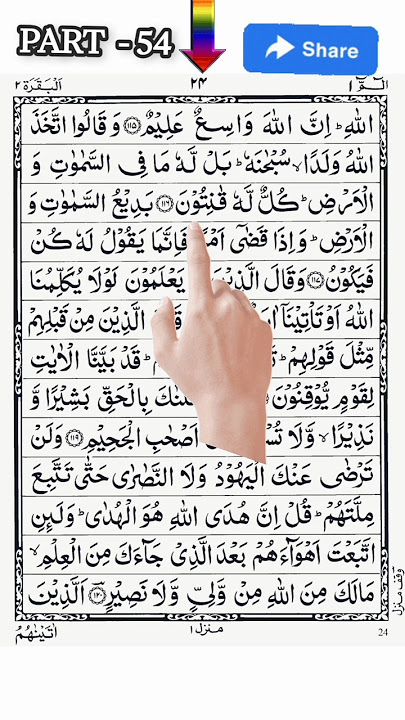 PART - 54
Share
الٓمّٓ ١
٢٤
اَلْبَقَرَة ٢
اللّٰهِ ؕ اِنَّ اللّٰهَ وَاسِعٌ عَلِیْمٌ ﴿۱۱۵﴾ وَ قَالُوا اتَّخَذَ
اللّٰهُ وَلَدًا ۙ سُبْحٰنَهٗ ؕ بَلْ لَّهٗ مَا فِی السَّمٰوٰتِ وَ
الْاَرْضِ ؕ كُلٌّ لَّهٗ قٰنِتُوْنَ ﴿۱۱۶﴾ بَدِیْعُ السَّمٰوٰتِ وَ
الْاَرْضِ ؕ وَ اِذَا قَضٰۤی فَاِنَّمَا یَقُوْلُ لَهٗ كُنْ
فَیَكُوْنُ ﴿۱۱۷﴾ وَ قَالَ یَعْلَمُوْنَ لَوْلَا یُكَلِّمُنَا
اللّٰهُ اَوْ تَاْتِیْنَاۤ الَّذِیْنَ مِنْ قَبْلِهِمْ
مِّثْلَ قَوْلِهِمْ ؕ قَدْ بَیَّنَّا الْاٰیٰتِ
لِقَوْمٍ یُّوْقِنُوْنَ بِالْحَقِّ بَشِیْرًا وَّ
نَذِیْرًا ۙ وَّ لَا اَصْحٰبِ الْجَحِیْمِ ﴿۱۱۹﴾ وَ لَنْ
تَرْضٰی عَنْكَ الْیَهُوْدُ وَ لَا النَّصٰرٰی حَتّٰی تَتَّبِعَ
مِلَّتَهُمْ ؕ قُلْ اِنَّ هُدَی اللّٰهِ هُوَ الْهُدٰی ؕ وَ لَىِٕنِ
اتَّبَعْتَ اَهْوَآءَهُمْ بَعْدَ الَّذِیْ جَآءَكَ مِنَ الْعِلْمِ ۙ
مَا لَكَ مِنَ اللّٰهِ مِنْ وَّلِیٍّ وَّ لَا نَصِیْرٍ ﴿۱۲۰﴾ اَلَّذِیْنَ
وقف منزل
اٰتَیْنٰهُمُ
منزل ١
24